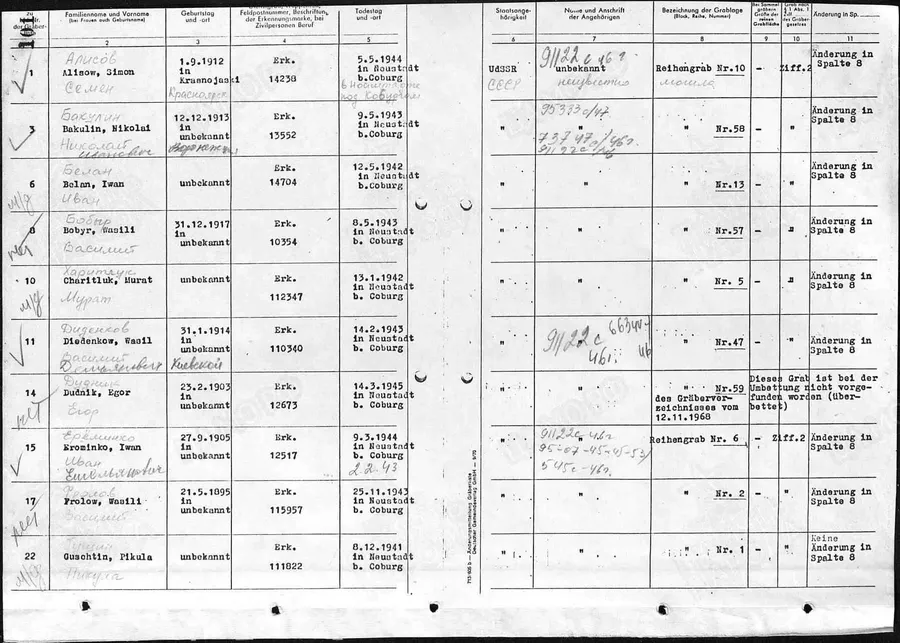 Familienname und Vorname
(bei Frauen auch Geburtsname)
Geburtstag
und -ort
Feldpostnummer, Beschriftung
der Erkennungsmarke, bei
Zivilpersonen Beruf
Todestag
und -ort
Staatsange-
hörigkeit
Name und Anschrift
der Angehörigen
Bezeichnung der Grablage
(Block, Reihe, Nummer)
Änderung in Sp.
2 3 4 5 6 7 8 9 10 11
Алисов
1 Alisow, Simon
Семен
1.9.1912
in
Krasnojarski
Красноярск
Erk.
14238
5.5.1944
in Neustadt
b.Coburg
UdSSR
СССР
91122 с 46г
unbekannt
неизвестно
Reihengrab Nr.10
могила
- Ziff.2
Änderung in
Spalte 8
Бакулин
3 Bakulin, Nikolai
Николай
Иванович
12.12.1913
in
unbekannt
Erk.
13552
9.5.1943
in Neustadt
b.Coburg
"
95333с/47
"
" Nr.58 - "
Änderung in
Spalte 8
Белан
6 Belan, Iwan
Иван
unbekannt
Erk.
14704
12.5.1942
in Neustadt
b.Coburg
" " " Nr.13 - "
Änderung in
Spalte 8
Бобыр
8 Bobyr, Wasili
Василий
31.12.1917
in
unbekannt
Erk.
10354
8.5.1943
in Neustadt
b. Coburg
" " " Nr.57 - "
Änderung in
Spalte 8
Харитлук
10 Charitluk, Murat
Мурат
unbekannt
Erk.
112347
13.1.1942
in Neustadt
b. Coburg
" " " Nr. 5 - "
Änderung in
Spalte 8
Диденков
11 Diedenkow, Wasil
Василий
Демьянович
31.1.1914
in
unbekannt
Киевской
Erk.
110340
14.2.1943
in Neustadt
b. Coburg
"
91122 с
46г.
" Nr.47 - "
Änderung in
Spalte 8
Дудник
14 Dudnik, Egor
Егор
23.2.1903
in
unbekannt
Erk.
12673
14.3.1945
in Neustadt
b. Coburg
" " " Nr.59
des Gräberver-
zeichnisses vom
12.11.1968
Dieses Grab ist bei der
Umbettung nicht vorge-
funden worden (über-
bettet)
Ерёминко
15 Erominko, Iwan
Иван
Емельянович
27.9.1905
in
unbekannt
Erk.
12517
9.3.1944
in Neustadt
b. Coburg
2-2-43
"
91122с-46г
545с-46г.
Reihengrab Nr. 6 - Ziff.2
Änderung in
Spalte 8
Фролов
17 Frolow, Wasili
Василий
21.5.1895
in
unbekannt
Erk.
115957
25.11.1943
in Neustadt
b. Coburg
" " " Nr. 2 - "
Änderung in
Spalte 8
22 Guschtin, Pikula
Пикула
unbekannt
Erk.
111822
8.12.1941
in Neustadt
b. Coburg
" " " Nr. 1 - "
Keine
Änderung in
Spalte 8